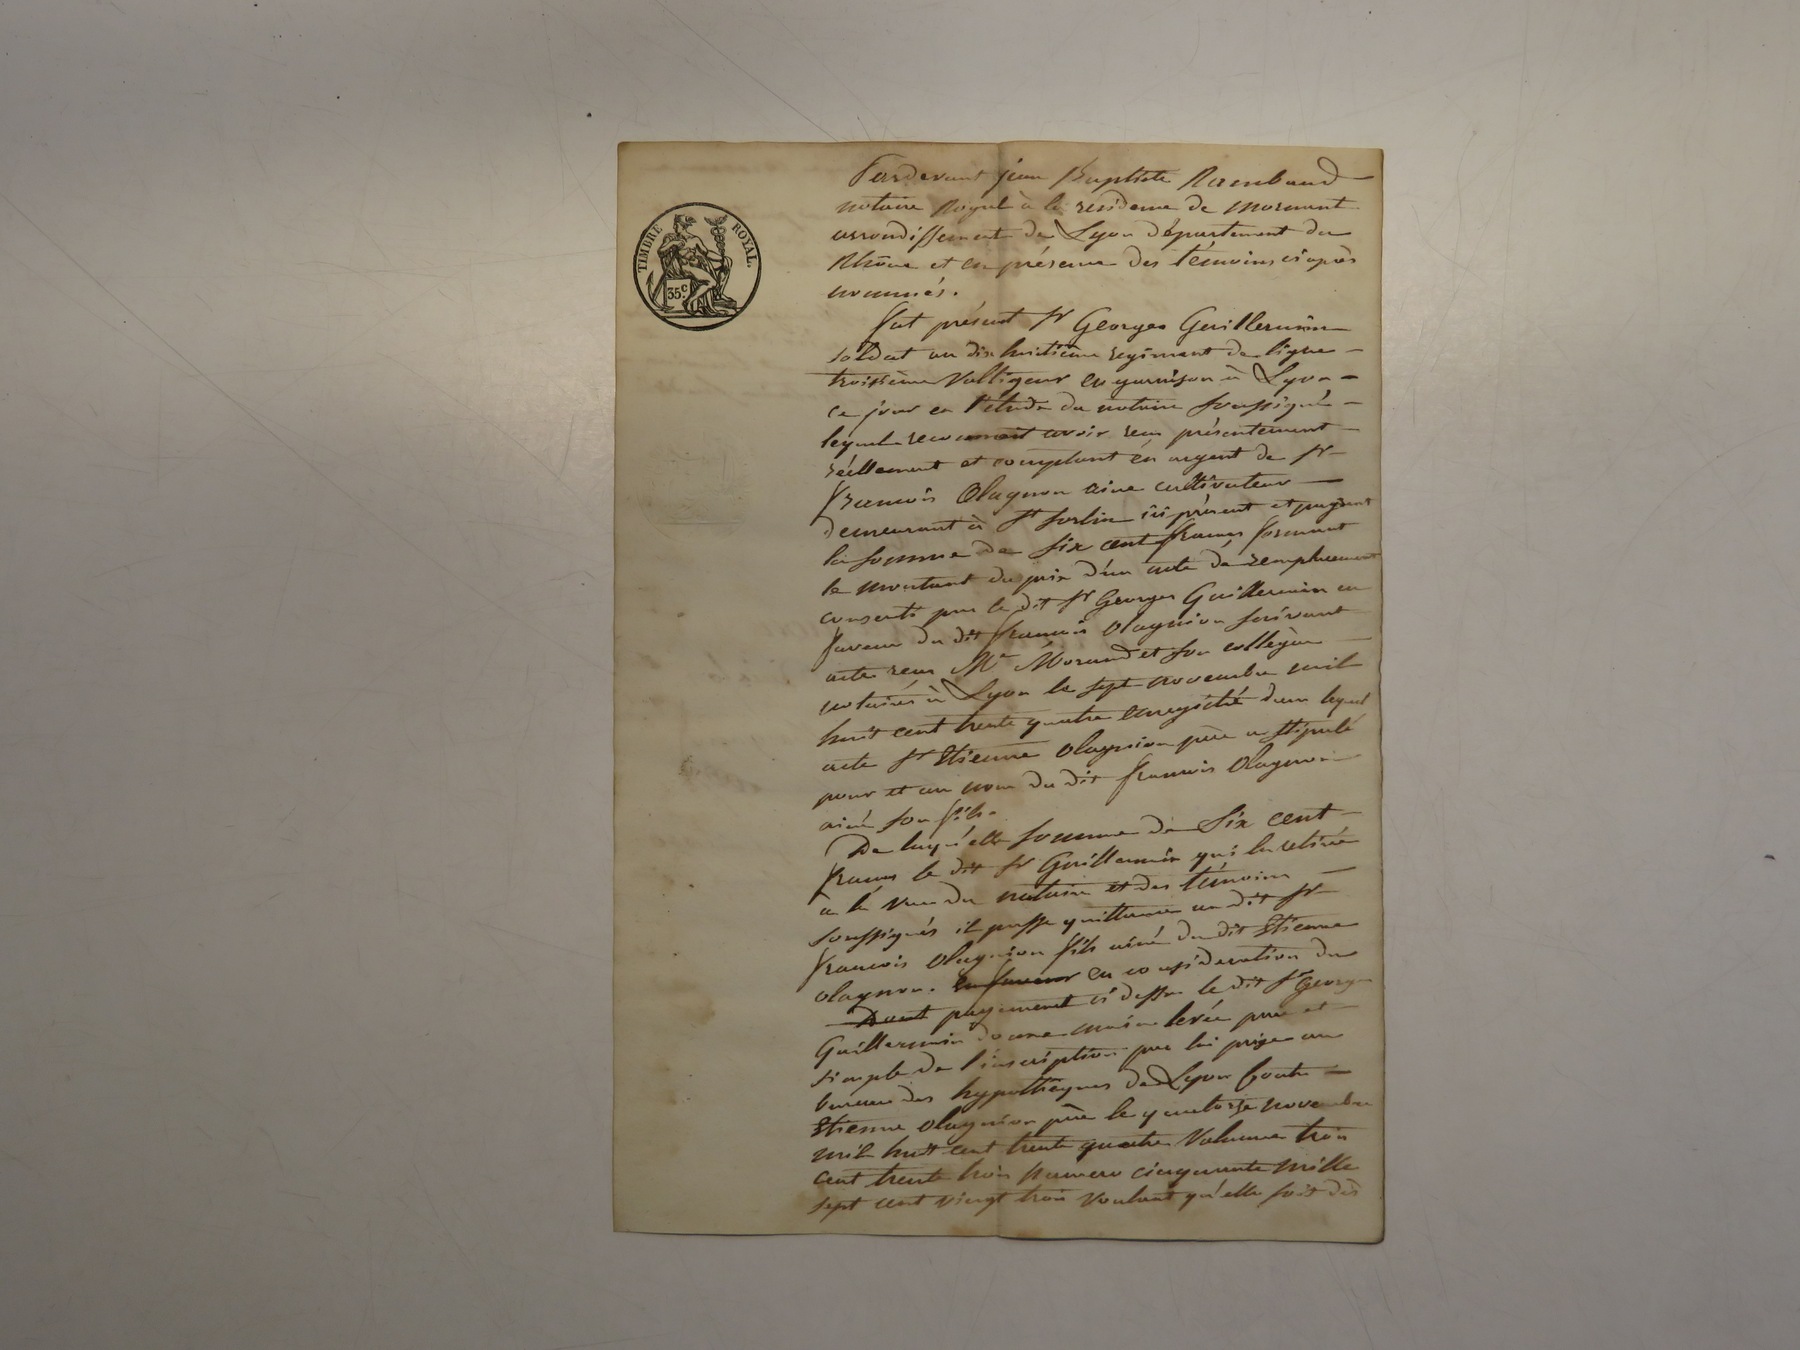 TIMBRE ROYAL.
35c
Pardevant jean Baptiste Rambaud
notaire Royal à la résidence de mornant
arrondissement de Lyon département du
Rhône et en présence des témoins ci après
nommés.
fut présent Sr Georges Guillermin
soldat au dix huitième regiment de ligne
troisième Voltigeur en garnison à Lyon
ce jour en l'étude du notaire soussigné
lequel reconnait avoir reçu présentement
réellement et comptant en argent de Sr
françois Olagnon ainé cultivateur
demeurant à St Sorlin ici présent et payant
la somme de six cent francs formant
le montant du prix d'un acte de remplacement
consenti par le dit Sr Georges Guillermin en
faveur du dit francois Olagnion suivant
acte reçu Me Morand et son collègue
notaires à Lyon le sept novembre mil
huit cent trente quatre enregistré dans lequel
acte Sr Etienne Olagnion père a stipulé
pour et au nom du dit francois Olagnion
ainé son fils.
De laquelle somme de Six cent
francs le dit Sr Guillermin qui la retirée
à la vue du notaire et des témoins
soussignés il passe quittance au dit Sr
francois Olagnion fils ainé du dit Etienne
olagnon. en faveur en considération du
Dont payement ci dessus le dit Sr George
Guillermin donne main levée pure et
simple de l'inscription par lui prise au
bureau des hypothèques de Lyon Contre
Etienne Olagnion père le quatorze novembre
mil huit cent trente quatre Volume trois
cent trente trois numero cinquante mille
sept cent vingt trois voulant qu'elle soit dès